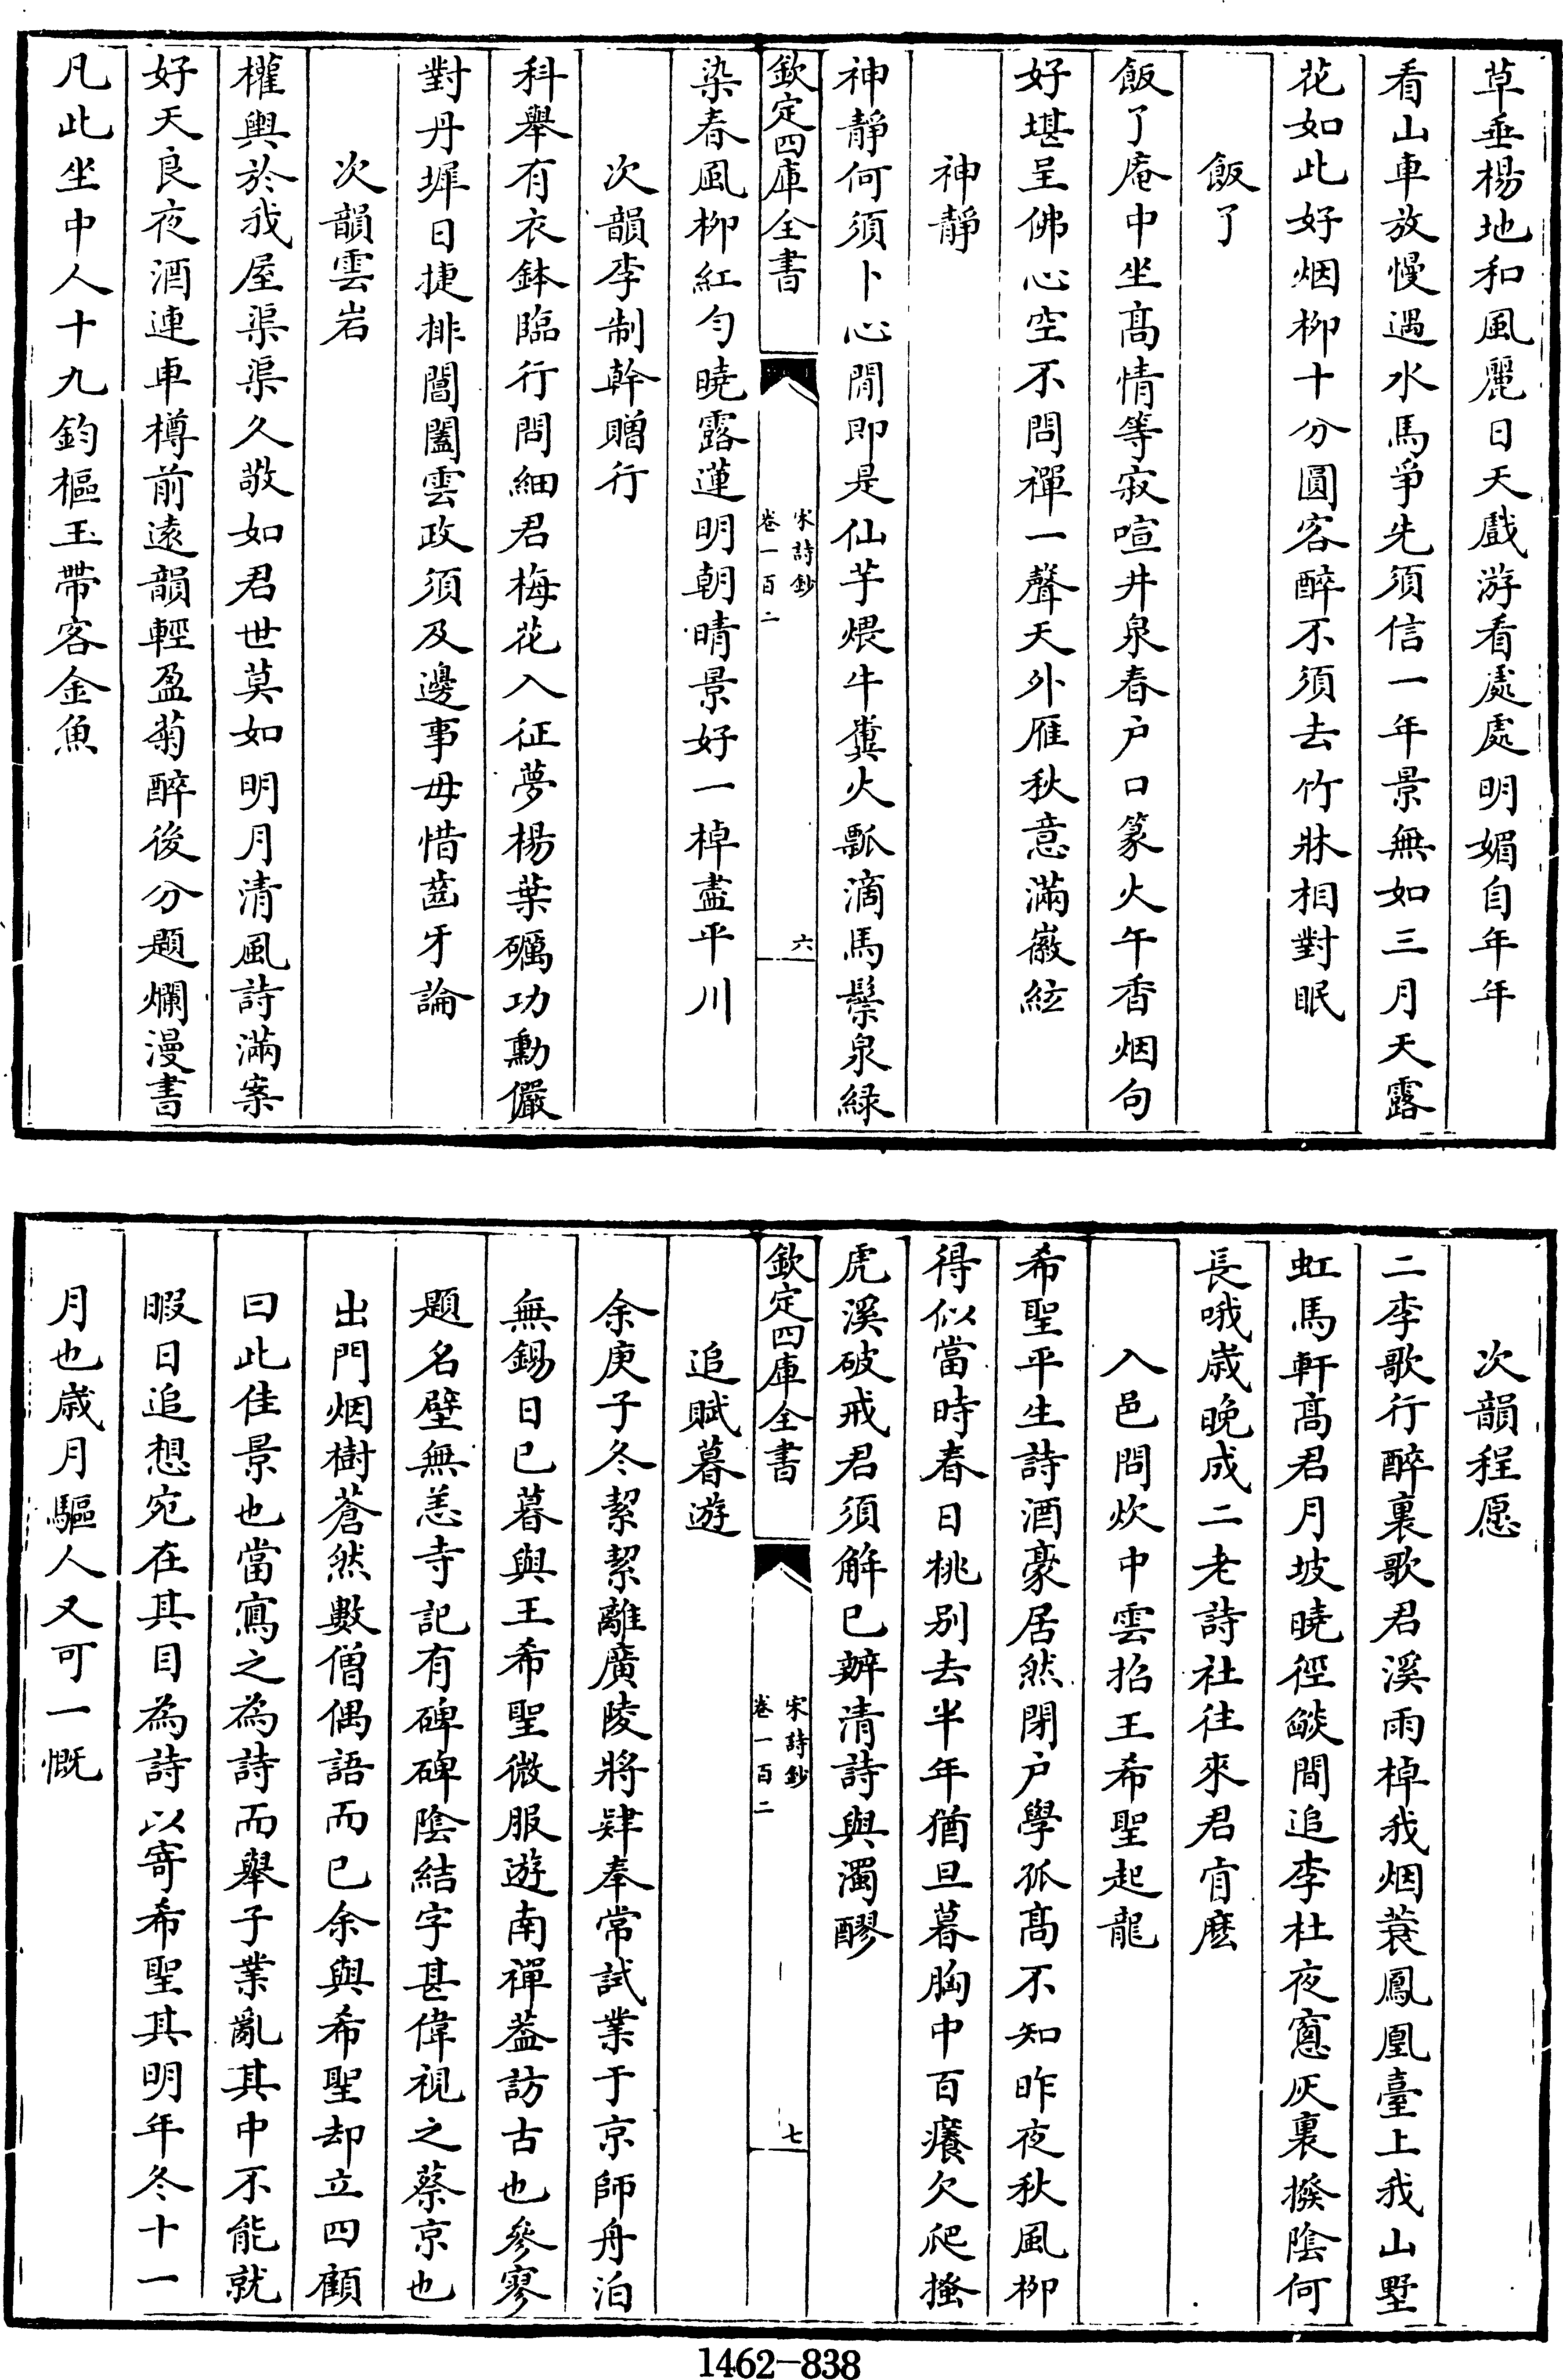 草垂楊地和風麗日天戲游看處處明媚自年年
看山車放慢遇水馬爭先須信一年景無如三月天露
花如此好烟柳十分圓客醉不須去竹牀相對眠
飯了
飯了庵中坐高情等寂喧井泉春户口篆火午香烟句
好堪呈佛心空不問禪一聲天外雁秋意滿徽絃
神靜
神靜何須卜心閒即是仙芋煨牛糞火瓢滴馬鬃泉緑
欽定四庫全書
宋詩鈔
卷一百二
六
染春風柳紅勻曉露蓮明朝晴景好一棹盡平川
次韻李制幹贈行
科舉有衣鉢臨行問細君梅花入征夢楊葉礪功勳儼
對丹墀日捷排閶闔雲政須及邊事毋惜齒牙論
次韻雲岩
權輿於我屋渠渠久敬如君世莫如明月清風詩滿案
好天良夜酒連車樽前遠韻輕盈菊醉後分題爛漫書
凡此坐中人十九鈞樞玉帶客金魚
次韻程愿
二李歌行醉裏歌君溪雨棹我烟蓑鳳凰臺上我山墅
虹馬軒高君月坡曉徑燄間追李杜夜窻灰裏撥陰何
長哦歲晚成二老詩社往來君肯麽
入邑問炊中雲招王希聖起龍
希聖平生詩酒豪居然閉户學孤高不知昨夜秋風柳
得似當時春日桃别去半年猶旦暮胸中百癢欠爬搔
虎溪破戒君須解已辦清詩與濁醪
欽定四庫全書
宋詩鈔
卷一百二
七
追賦暮遊
余庚子冬絜絜離廣陵將肄奉常試業于京師舟泊
無錫日已暮與王希聖微服遊南禪葢訪古也參寥
題名壁無恙寺記有碑碑陰結字甚偉視之蔡京也
出門烟樹蒼然數僧偶語而已余與希聖却立四顧
曰此佳景也當寫之為詩而舉子業亂其中不能就
暇日追想宛在其目為詩以寄希聖其明年冬十一
月也歲月驅人又可一慨
1462-838